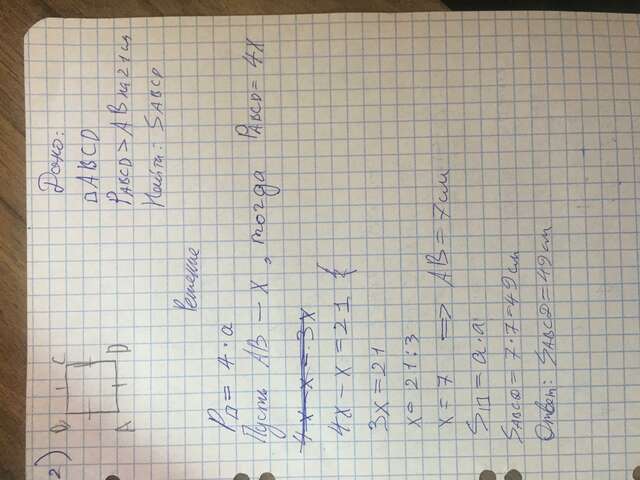 2)
B C
A D
Дано:
□ABCD
PABCD > AB на 21 см
Найти: SABCD
Решение
P□ = 4·a
Пусть AB – x, тогда PABCD = 4x
4x – x = 3x
4x – x = 21
3x = 21
x = 21:3
x = 7 => AB = 7см
S□ = a·a
SABCD = 7·7=49см
Ответ: SABCD=49см